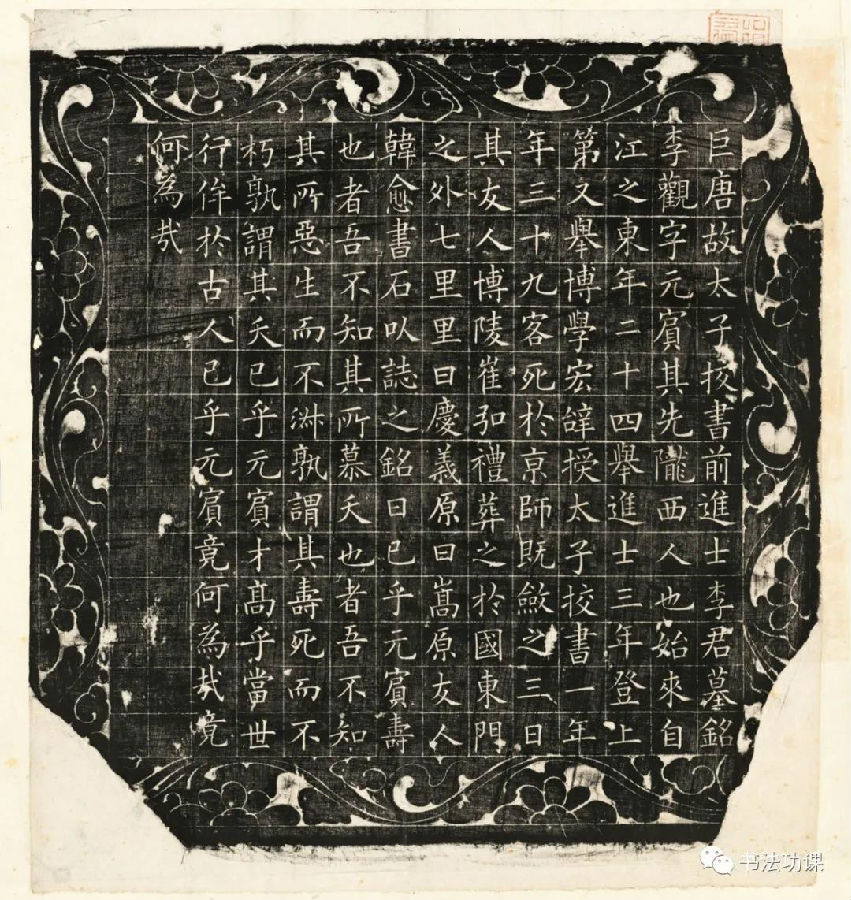 巨唐故太子挍書前進士李君墓銘
李觀字元賓其先隴西人也始來自
江之東年二十四舉進士三年登上
第又舉博學宏辭授太子挍書一年
年三十九客死於京師既斂之三日
其友人博陵崔弘禮葬之於國東門
之外七里里曰慶義原曰嵩原友人
韓愈書石以誌之銘曰已乎元賓壽
也者吾不知其所慕夭也者吾不知
其所惡生而不淑孰謂其壽死而不
朽孰謂其夭已乎元賓才高乎當世
行侔於古人已乎元賓竟何為哉竟
何為哉
书法功课